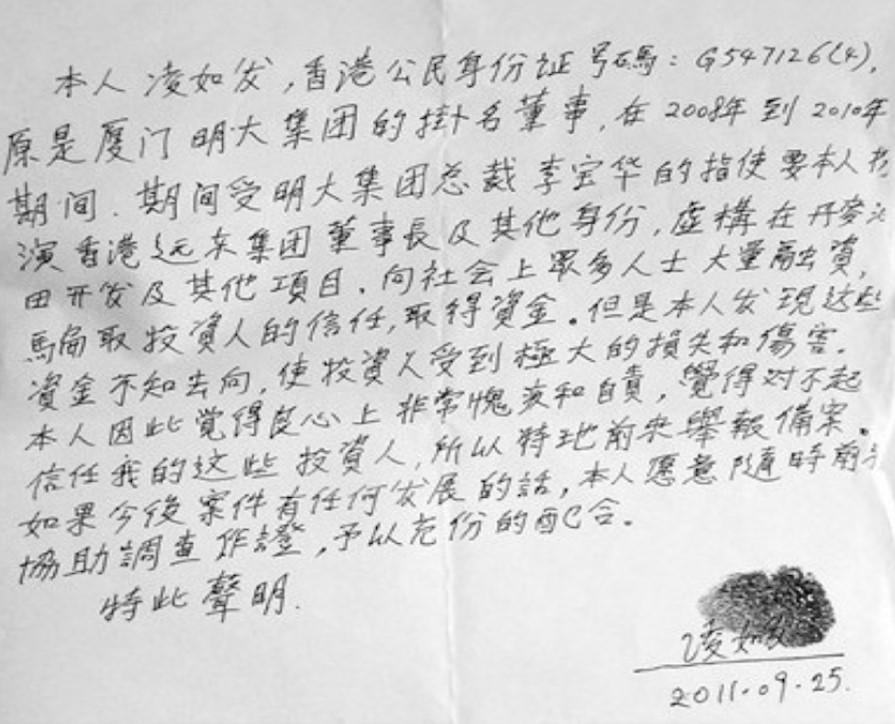 本人凌如发,香港公民身份证号碼:G547126(4),
原是厦门明大集团的掛名董事,在2008年到2010年
期间.期间受明大集团总裁李宝华的指使要本人扮
演香港远东集团董事長及其他身份,虚構在丹麥
田开发及其他項目.向社会上眾多人士大量融資,
騙取投資人的信任,取得資金。但是本人发现这些
資金不知去向,使投資人受到極大的損失和傷害.
本人因此觉得良心上非常愧疚和自責,覺得对不起
信任我的这些投資人,所以特地前来舉報備案。
如果今後案件有任何发展的話,本人愿意隨時前来
協助調查作證,予以充份的配合。
特此聲明.
凌如发
2011.09.25.